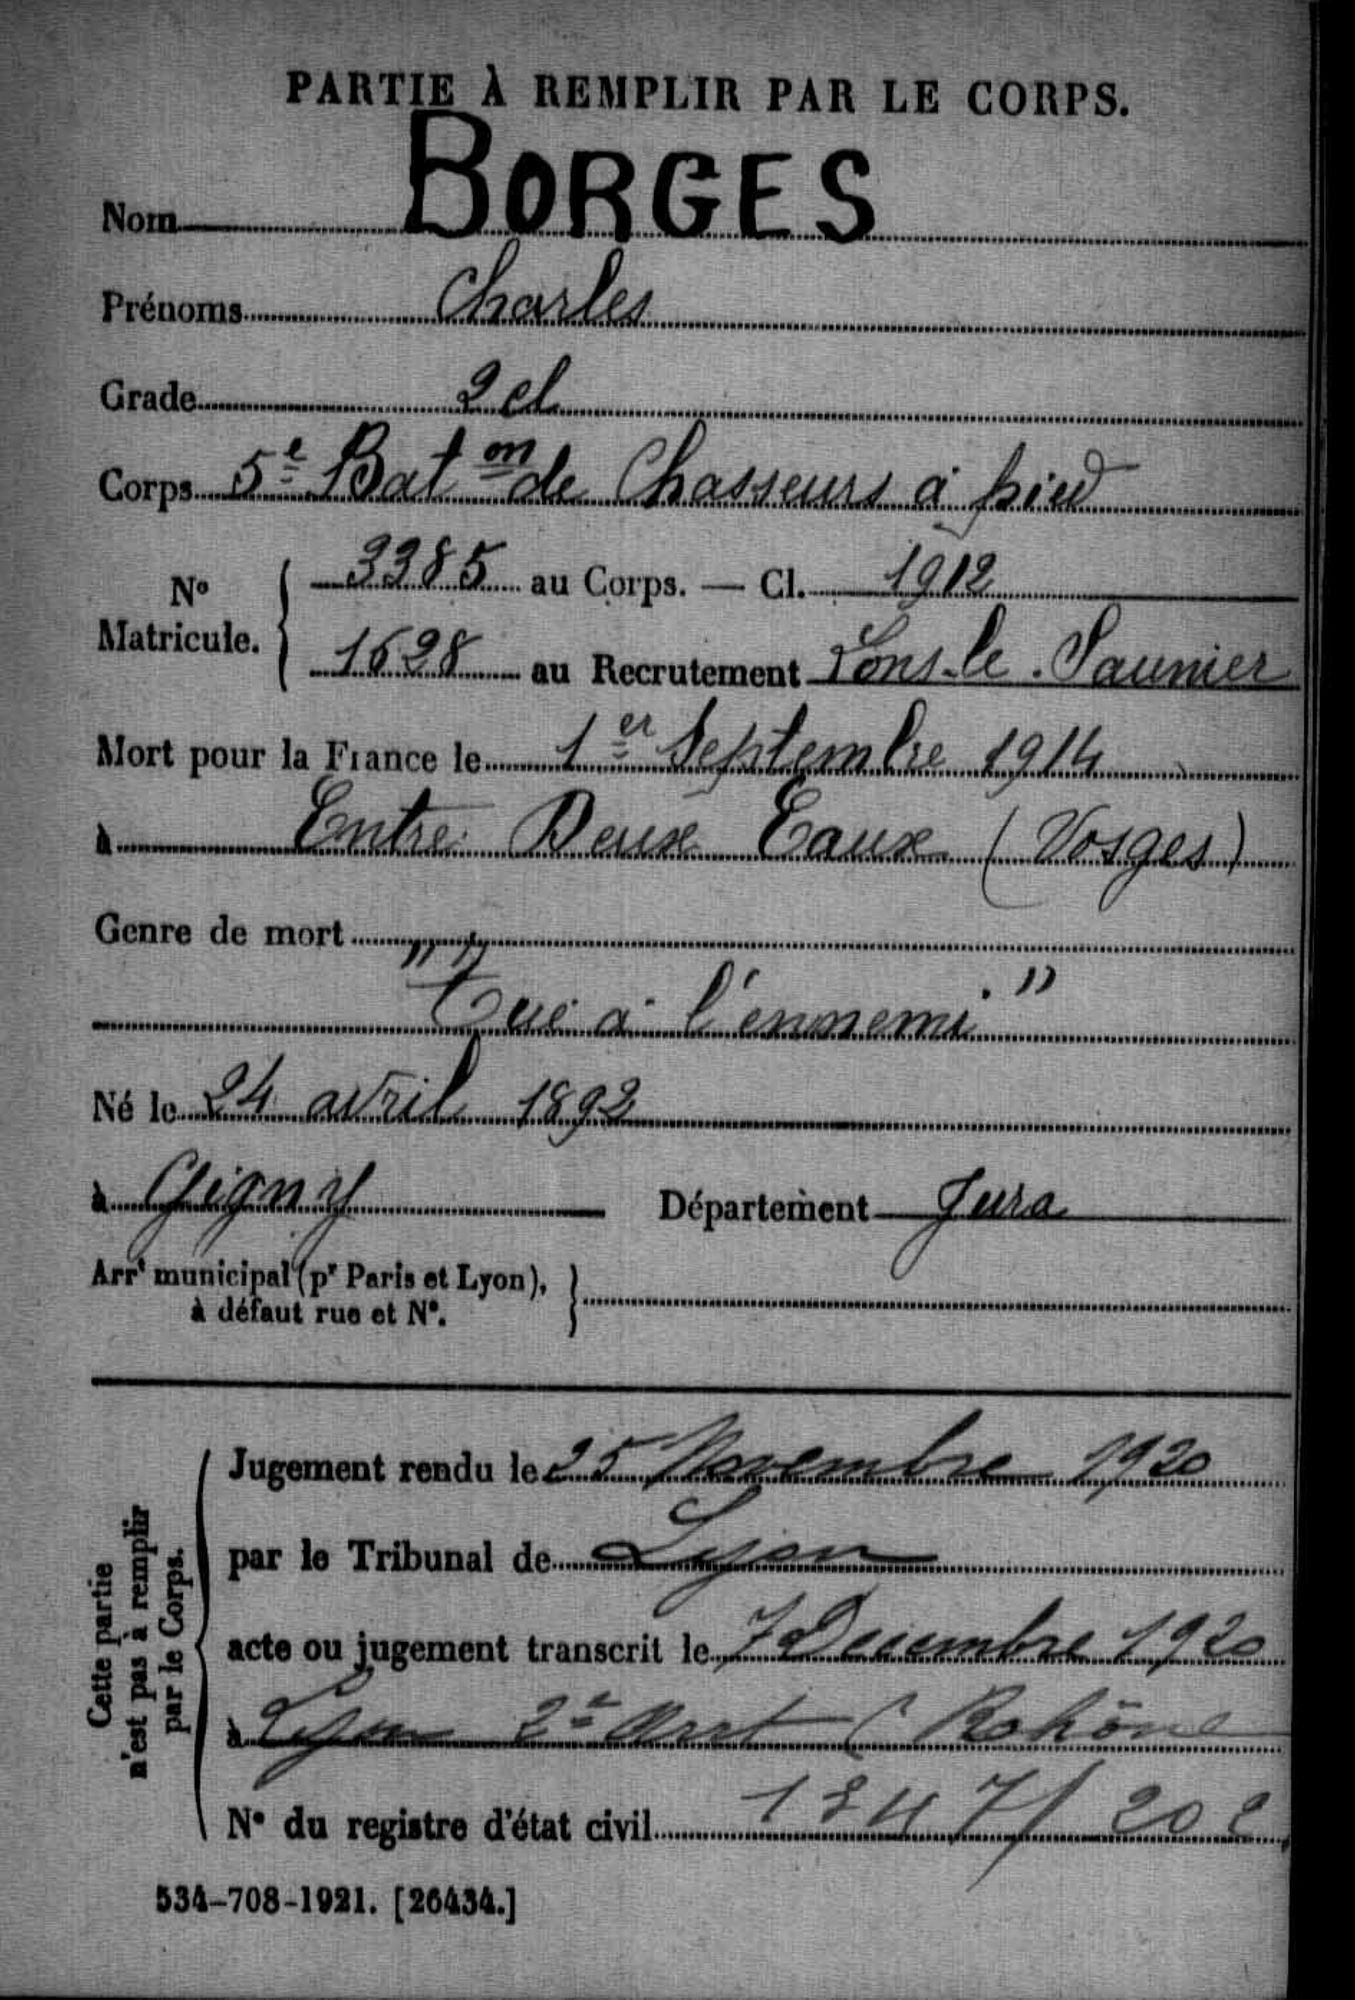 PARTIE À REMPLIR PAR LE CORPS.
Nom BORGES
Prénoms Charles
Grade 2 cl
Corps 5e Bat on de Chasseurs à pied
No Matricule. { 3385 au Corps. — Cl. 1912
1628 au Recrutement Lons-le-Saunier
Mort pour la France le 1er Septembre 1914
à Entre Deux Eaux (Vosges)
Genre de mort
"Tué à l'ennemi"
Né le 24 avril 1892
à Gigny Département Jura
Arrt municipal (pr Paris et Lyon), à défaut rue et No. }
Cette partie n'est pas à remplir par le Corps.
Jugement rendu le 25 Novembre 1920
par le Tribunal de Lyon
acte ou jugement transcrit le 7 Décembre 1920
à Lyon 2e Arrt (Rohône
No du registre d'état civil
534-708-1921. [26434.]